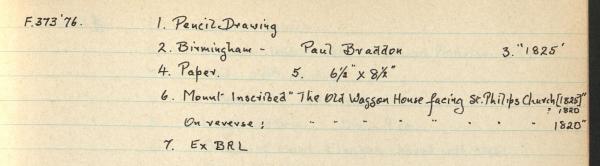 F.373'76. 1. Pencil Drawing
2. Birmingham - Paul Braddon 3. "1825"
4. Paper. 5. 6½" x 8½"
6. Mount Inscribed "The Old Waggon House facing St. Philips Church [1825]"
? 1820
On reverse : " " " " " " " 1820"
7. Ex BRL